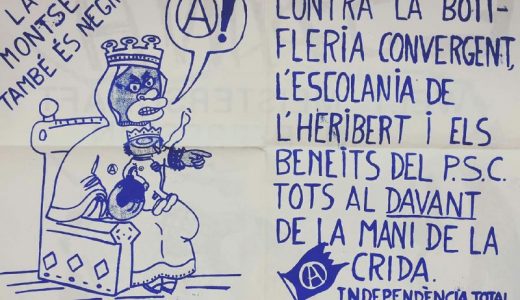 LA
MONTSE
TAMBÉ ÉS NEGR
Ⓐ!
CONTRA LA BOTI-
FLERIA CONVERGENT,
L'ESCOLANIA DE
L'HERIBERT I ELS
BENEITS DEL P.S.C.
TOTS AL DAVANT
DE LA MANI DE LA
CRIDA.
INDEPENDÈNCIA TOTAL